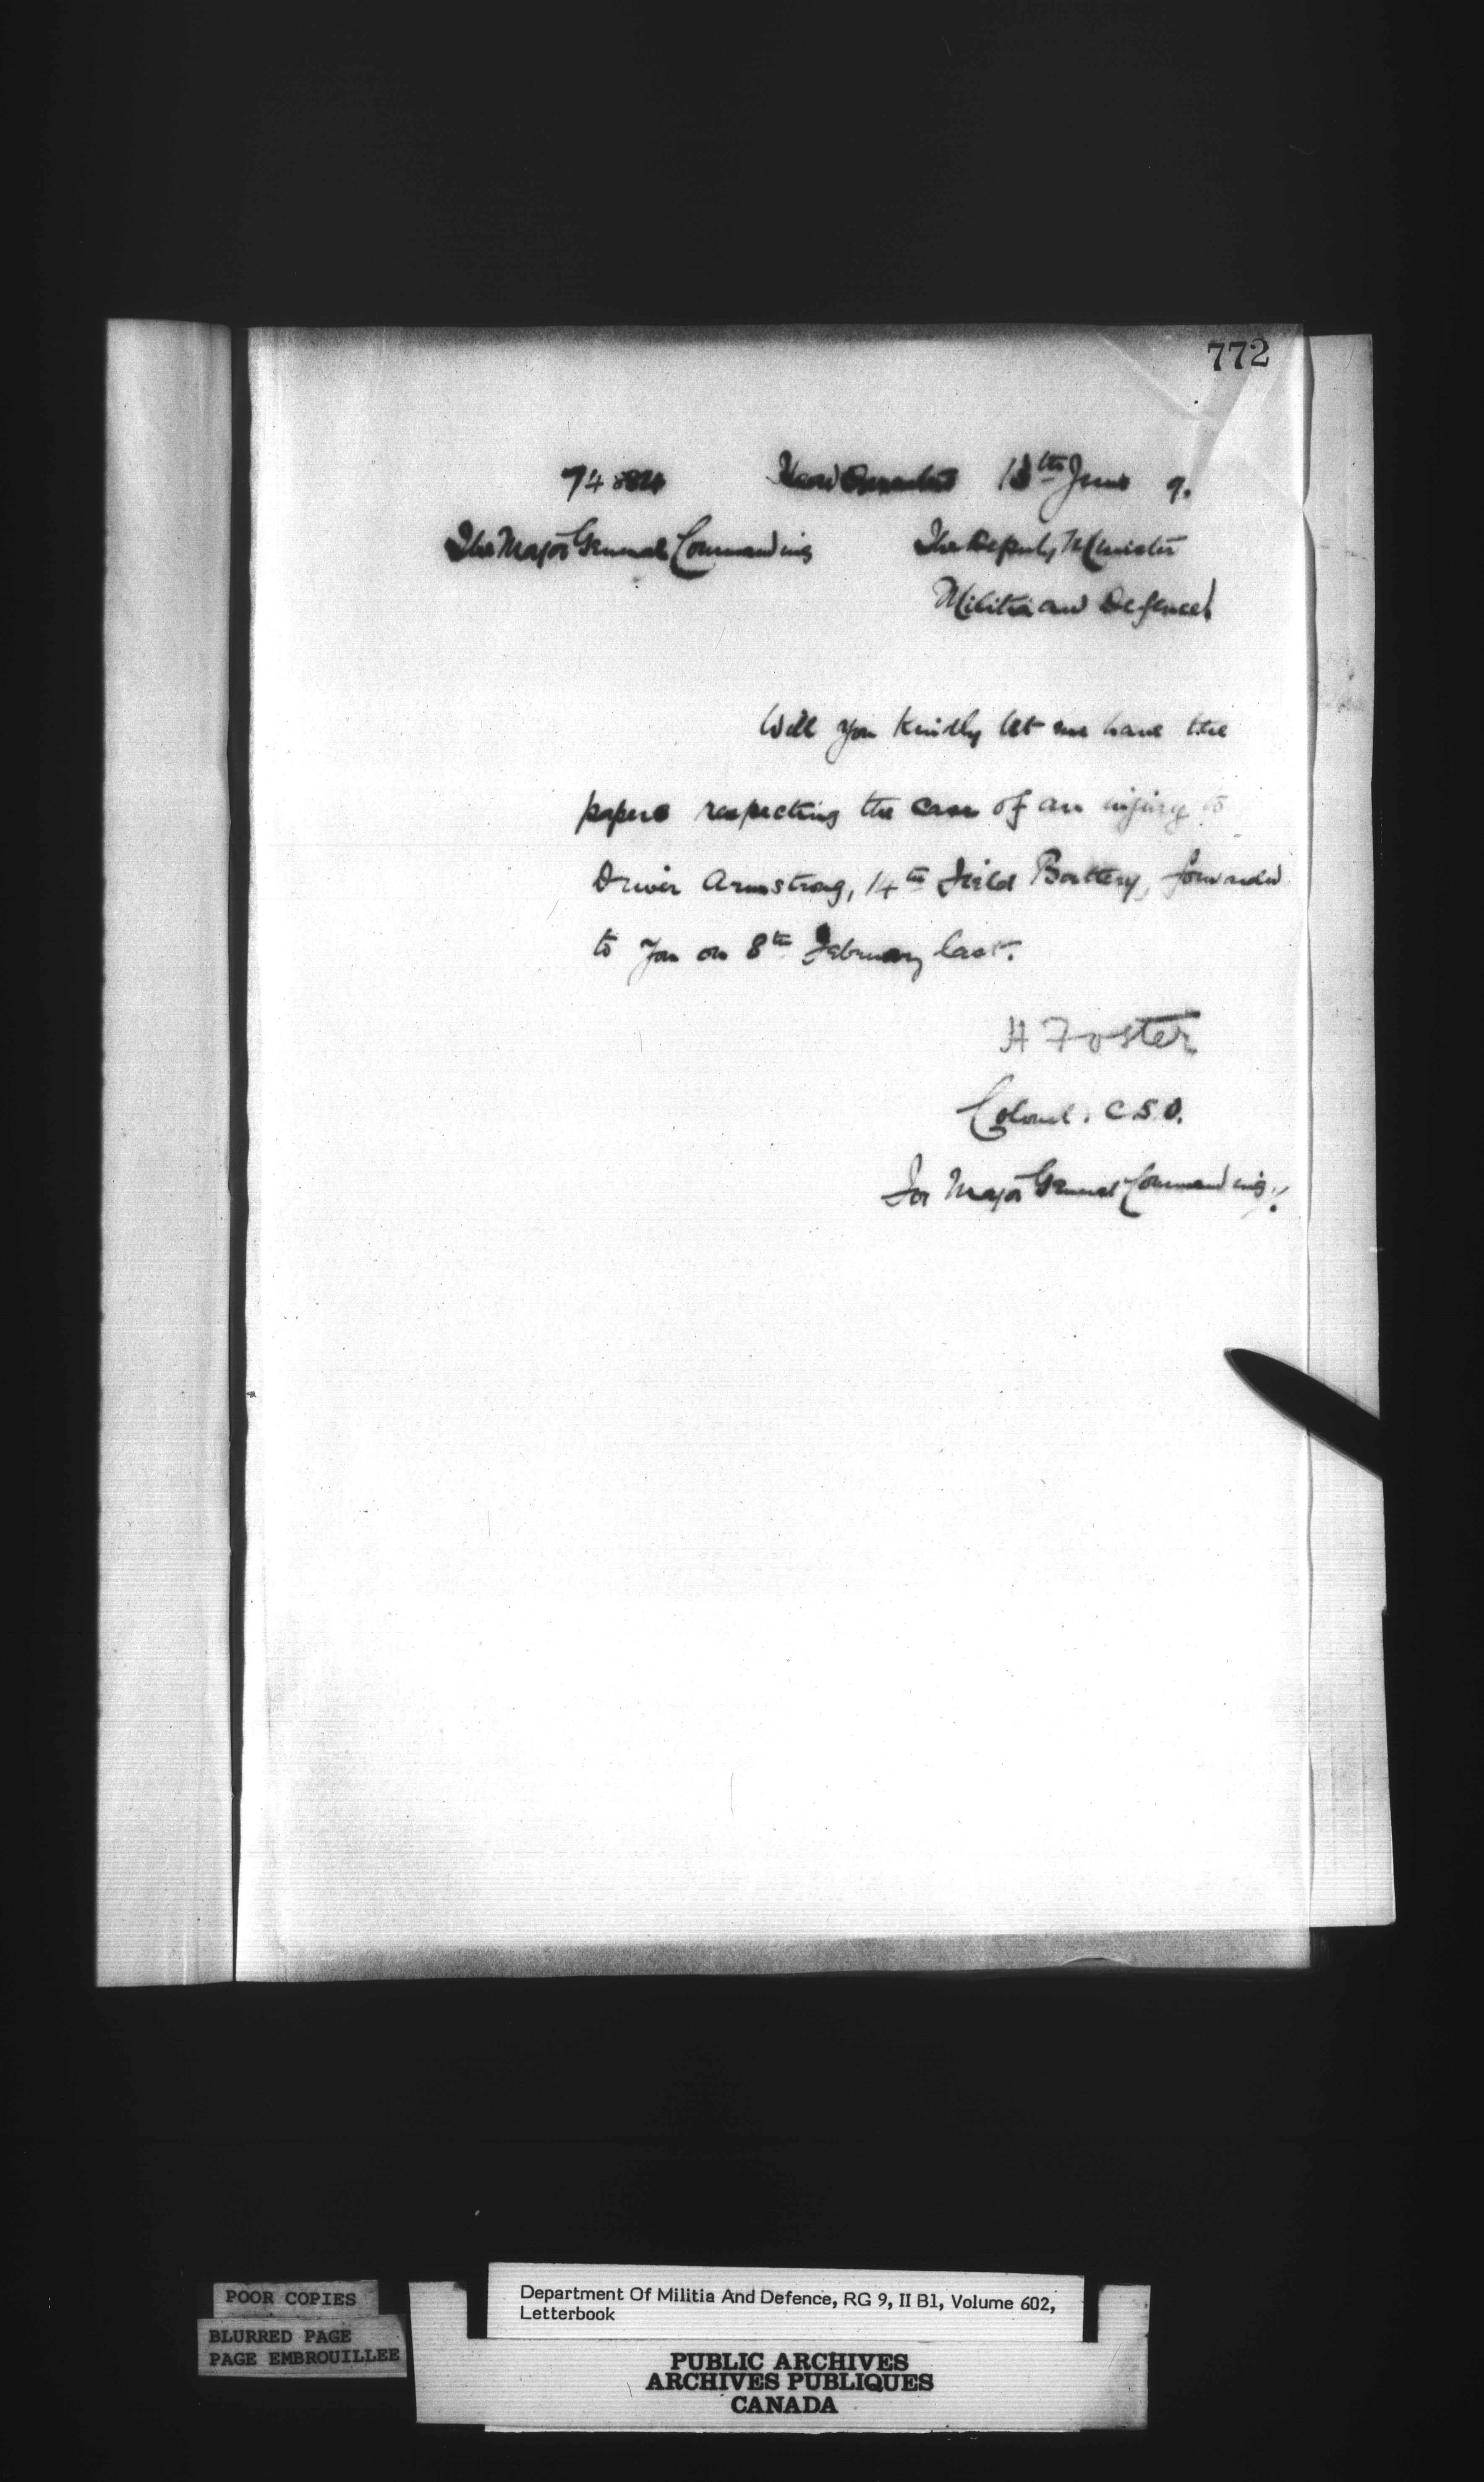 772
Head Quarters 13th June 9.
The Major General Commanding The Deputy Minister
Militia and Defence
Will you kindly let me have the
papers respecting the case of an injury to
Driver Armstrong, 14th Field Battery, forwarded
to you on 8th February last.
H Foster
Colonel. C.S.O.
For Major General Commanding
POOR COPIES
BLURRED PAGE
PAGE EMBROUILLEE
Department Of Militia And Defence, RG 9, II B1, Volume 602,
Letterbook
PUBLIC ARCHIVES
ARCHIVES PUBLIQUES
CANADA